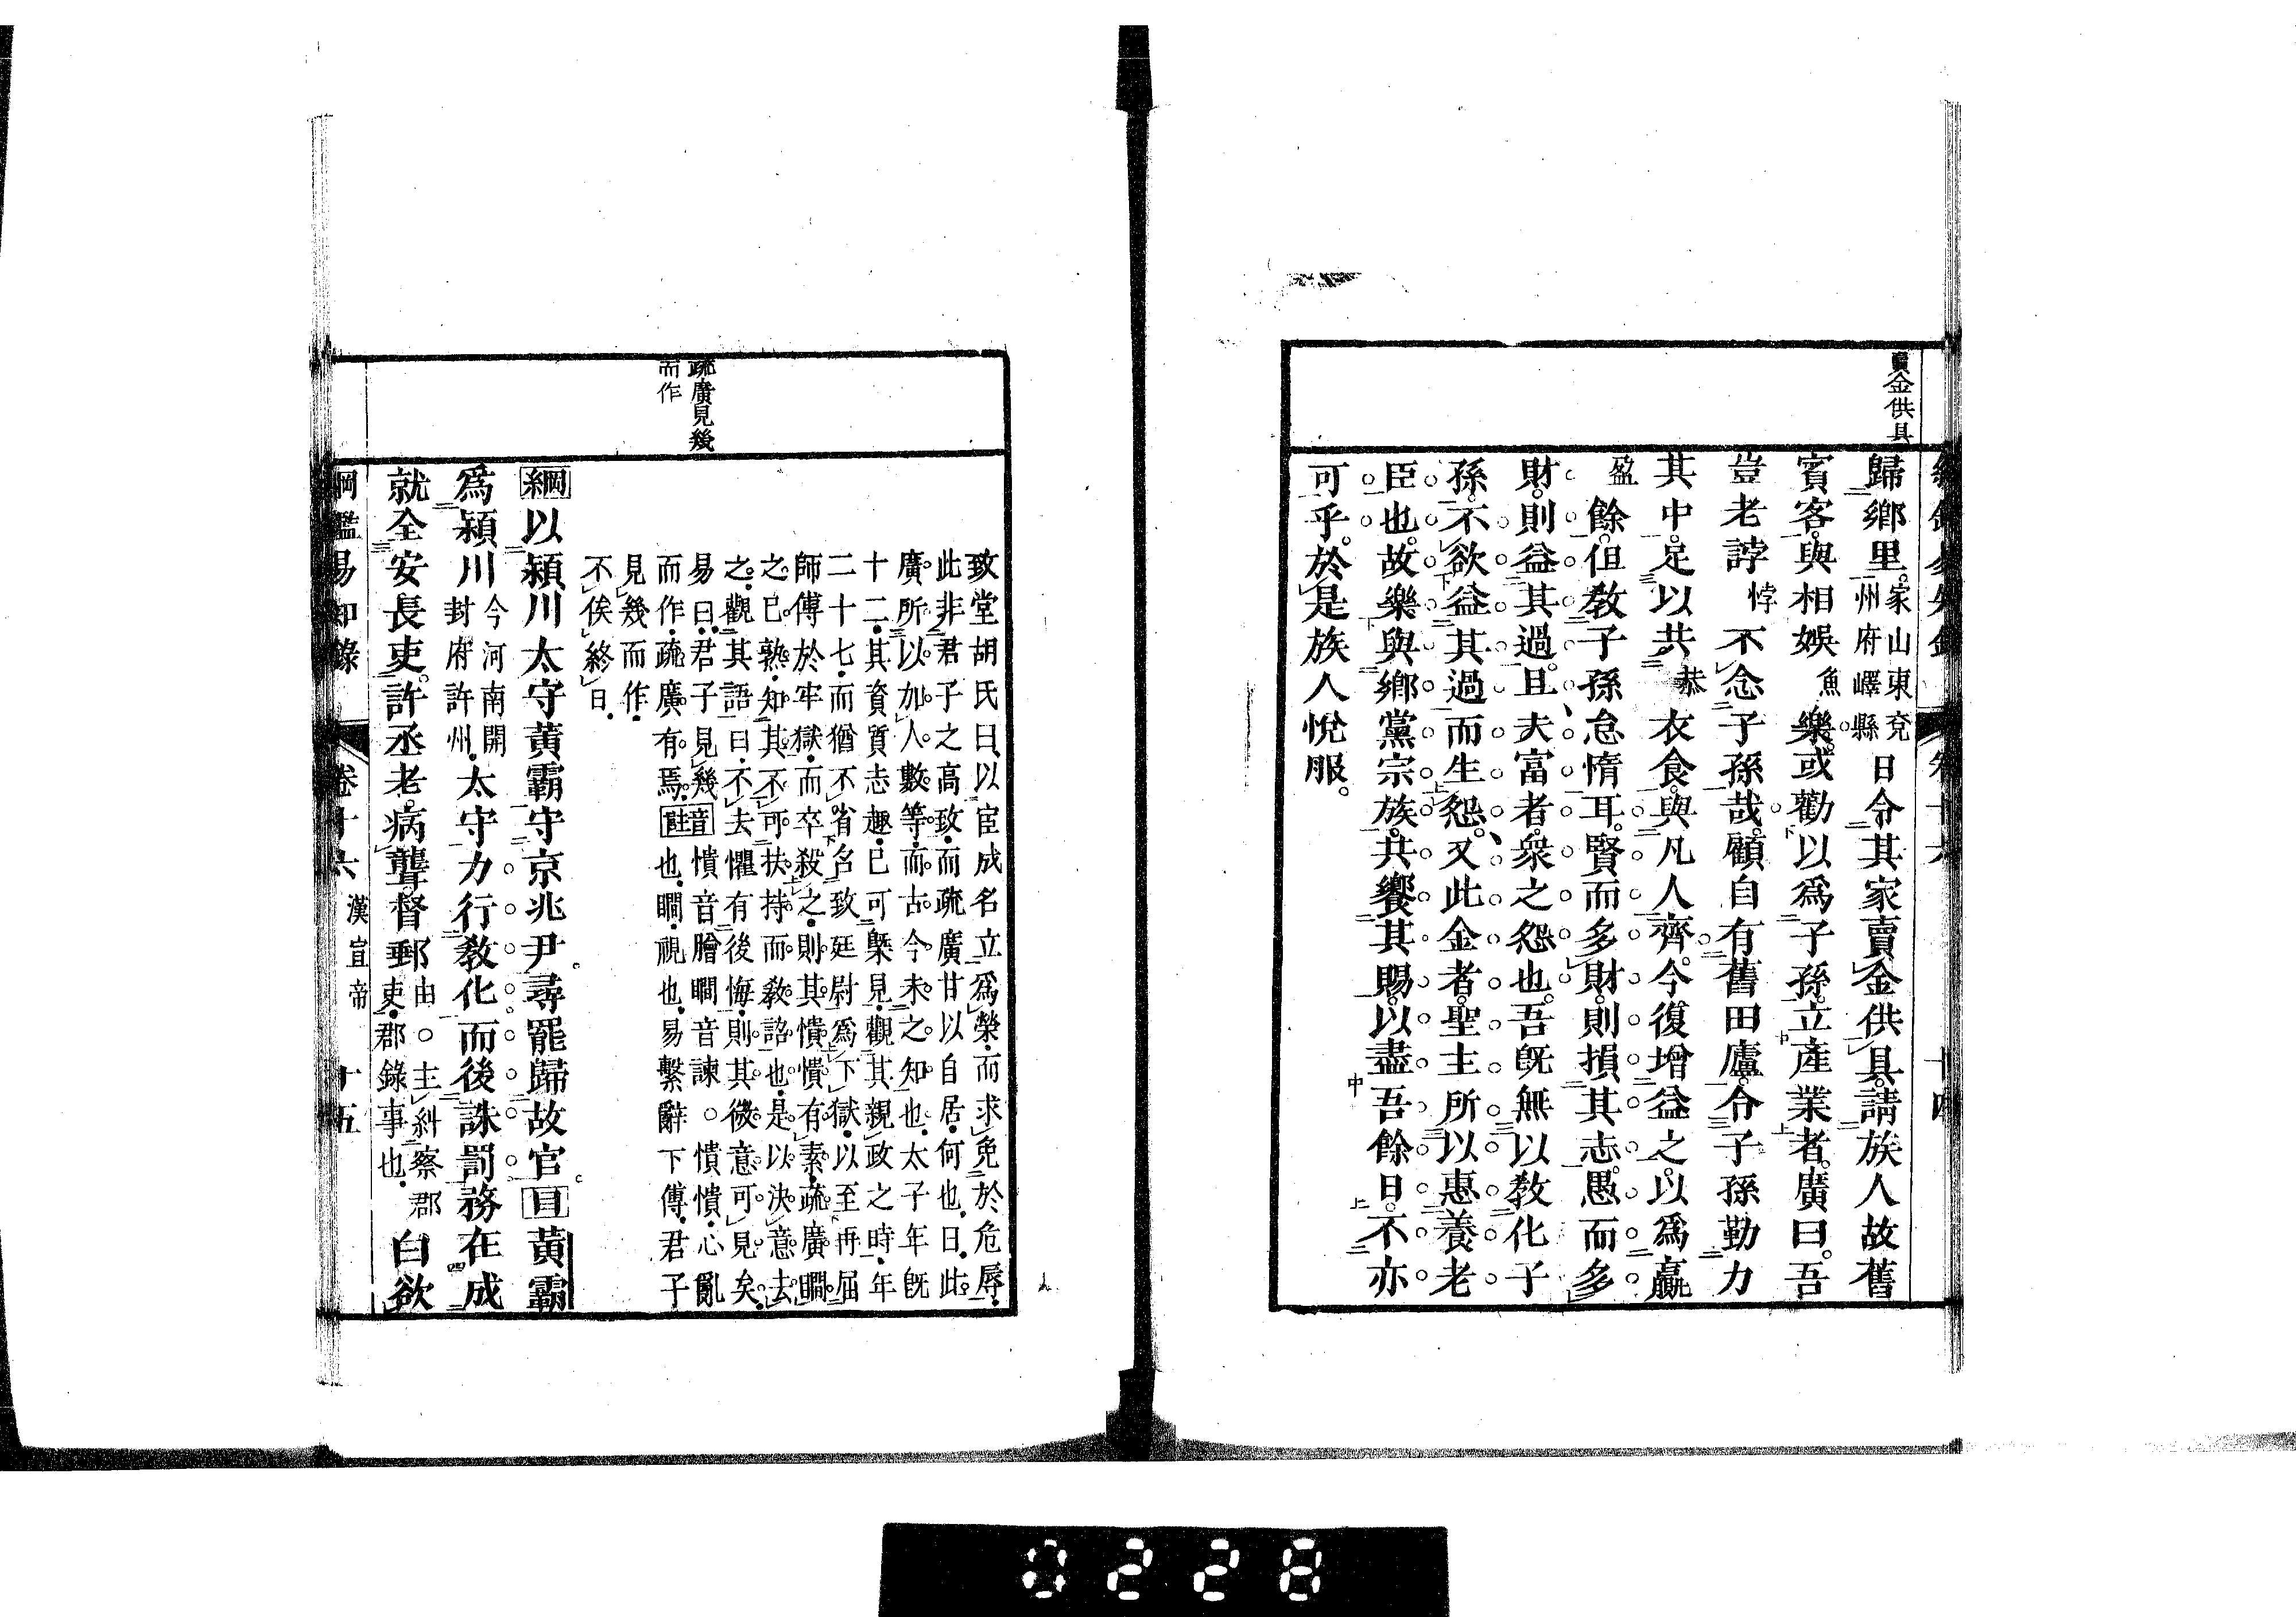 賣金供具
歸鄉里。家山東兗州府嶧縣日令其家賣金供具。請族人故舊
賓客。與相娛魚樂。或勸以爲子孫。立產業者。廣曰。吾
豈老誖悖不念子孫哉。顧自有舊田廬。令子孫勤力
其中。足以共恭衣食。與凡人齊。今復增益之。以爲贏
盈餘。但敎子孫怠惰耳。賢而多財。則損其志。愚而多
財。則益其過。且夫富者。衆之怨也。吾旣無以敎化子
孫。不欲益其過而生怨。又此金者。聖主所以惠養老
臣也。故樂與鄉黨宗族。共饗其賜。以盡吾餘日。不亦
可乎。於是族人悅服。
疏廣見幾
而作
致堂胡氏曰、以宦成名立爲榮、而求免於危辱、
此非君子之高致、而疏廣甘以自居、何也、曰、此
廣所以加人數等、而古今未之知也、太子年旣
十二、其資質志趣、已可槩見、觀其親政之時、年
二十七、而猶不省召致廷尉爲下獄、以至再屈
師傅於牢獄、而卒殺之、則其憒憒有素、疏廣瞯
之已熟、知其不可扶持而敎詔也、是以決意去
之、觀其語曰、不去懼有後悔、則其微意可見矣、
易曰、君子見幾音註憒音膾瞯音諫○憒憒、心亂
而作、疏廣有焉、也、瞯、視也、易繫辭下傳、君子
見幾而作、
不俟終日、
綱以潁川太守黃霸守京兆尹。尋罷歸故官。目黃霸
爲潁川今河南開封府許州、太守力行敎化而後誅罰務在成
就全安長吏。許丞老。病聾。督郵由○主糾察郡吏、郡錄事也、白欲
綱鑑易知錄 卷十六 漢宣帝 十五
0228